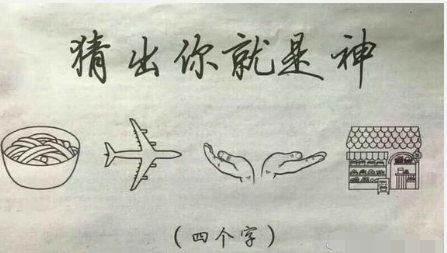 猜出你就是神
（四个字）